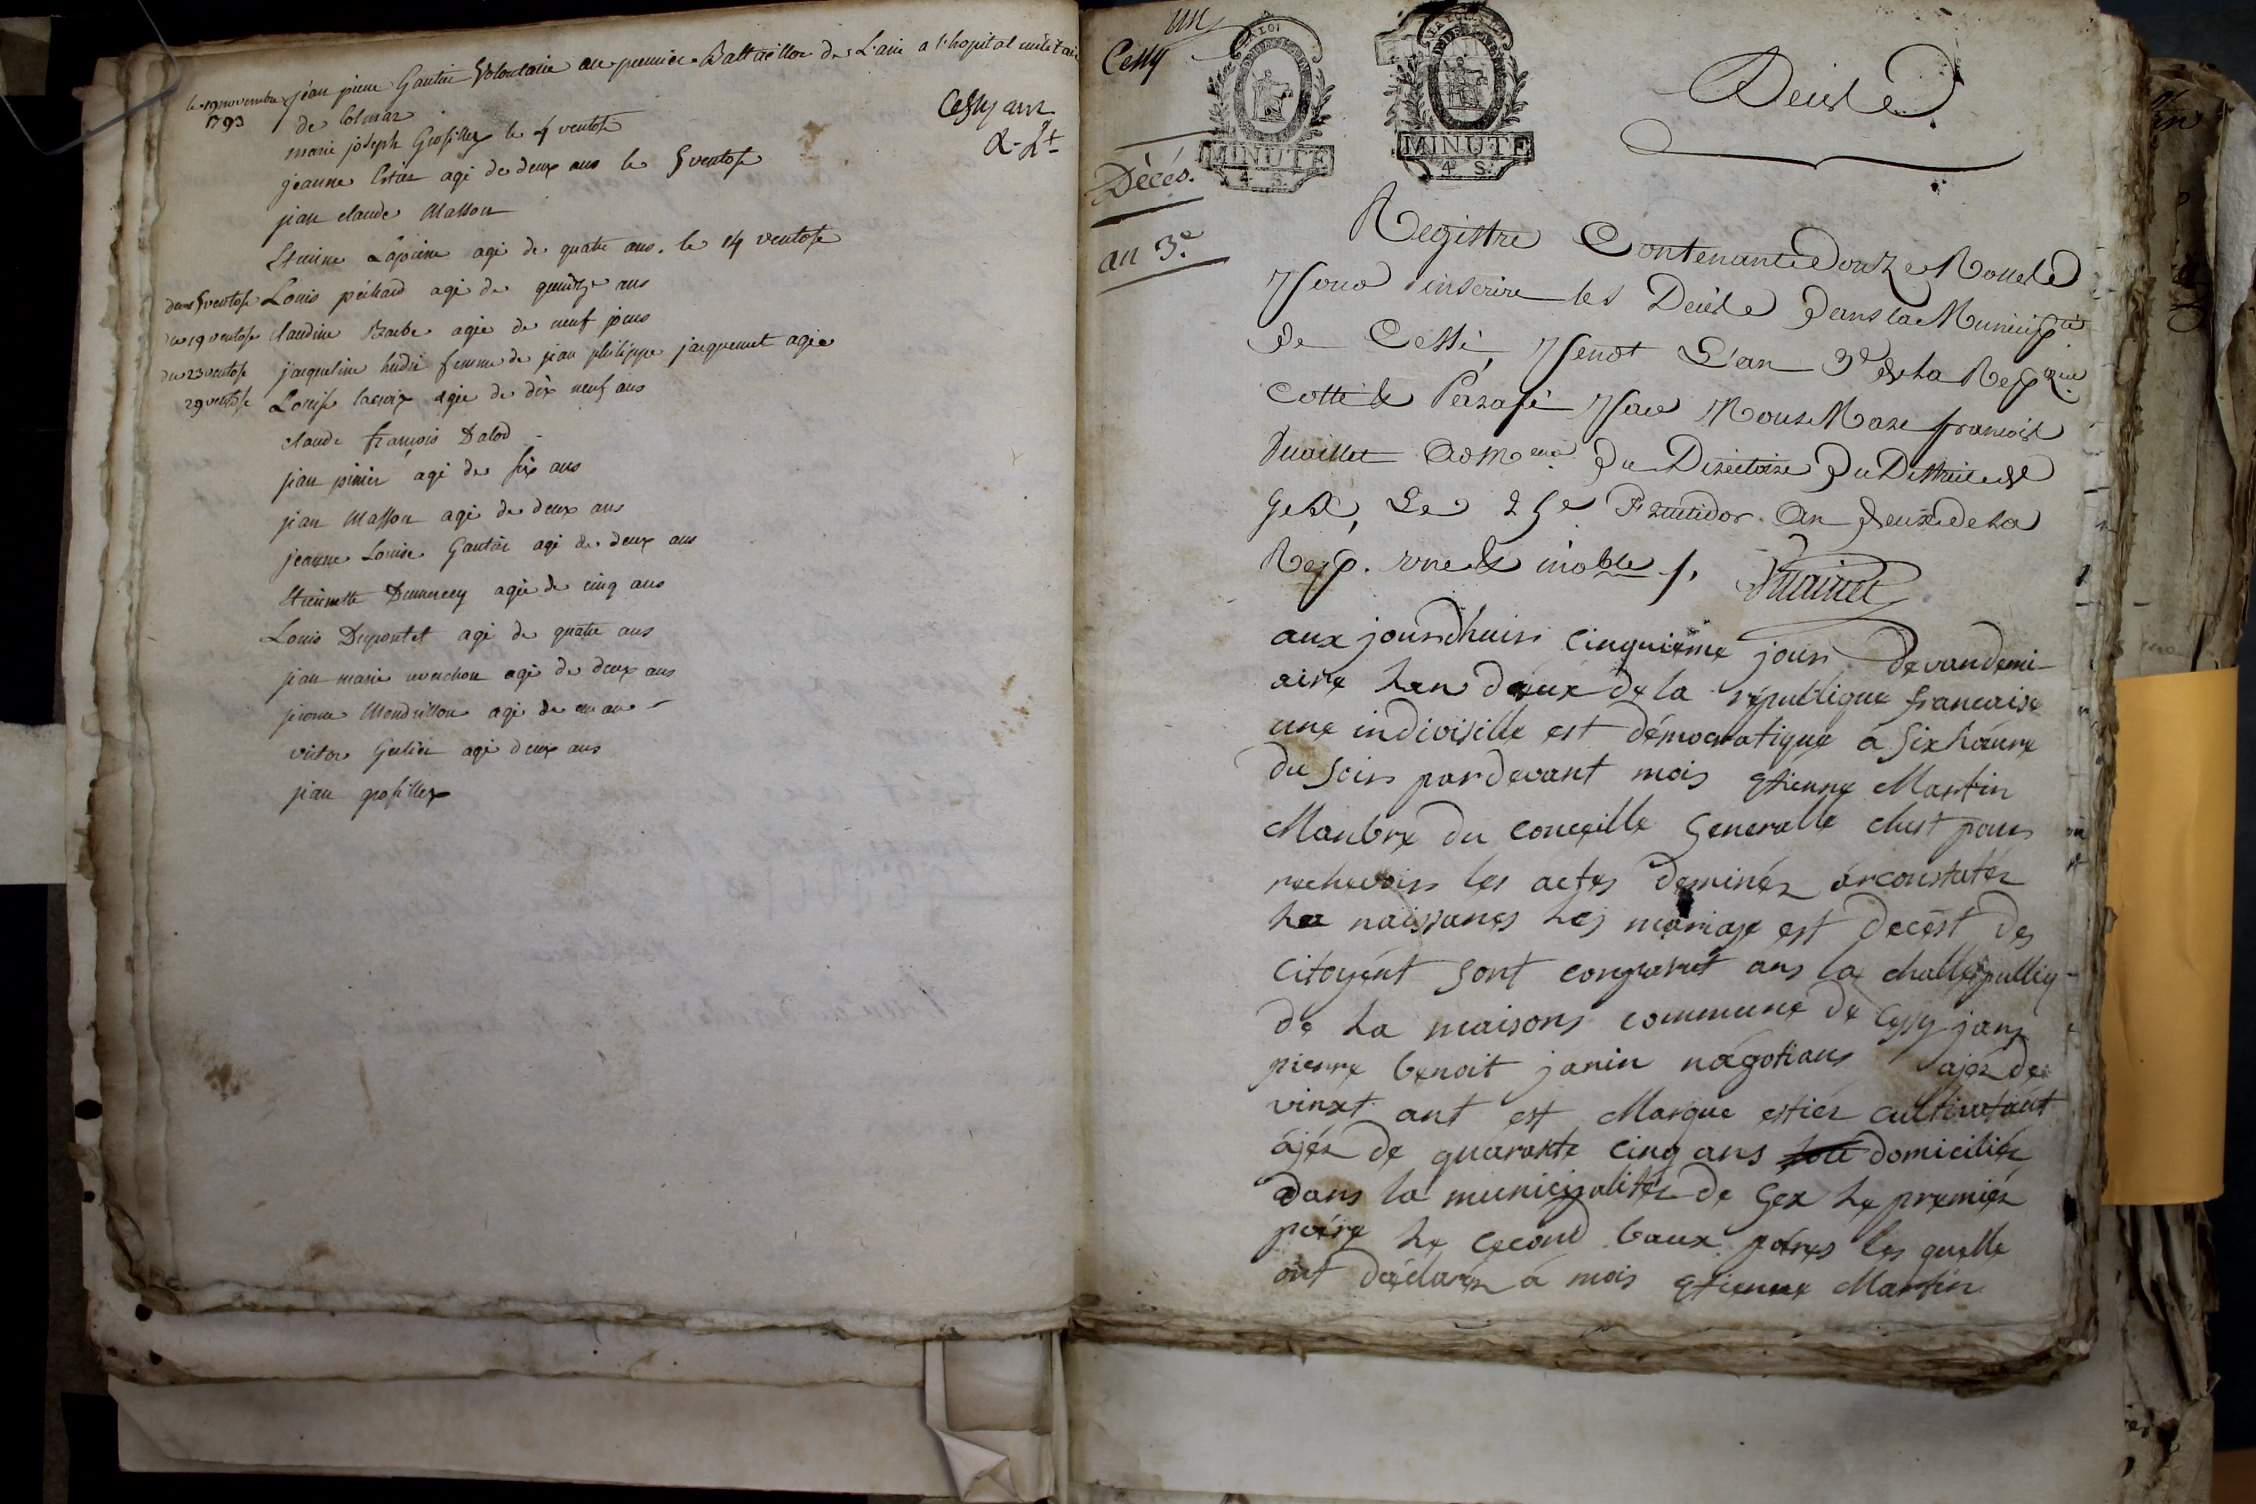 le 19 novembre 1793 jean pierre Gautier Volontaire au premier Battaillon de L'ain a l'hopital militai
de Colmar
marie joseph Grosfillex le 4 ventose
jeanne Estier agé de deux ans le 5 ventose
jean claude Masson
Etienne Lajoinie agé de quatre ans. le 14 ventose
du 5 ventose Louis péchard agé de quinze ans
du 19 ventose Claudine Barbe agée de neuf jours
du 23 ventose jacqueline femme de jean philippe jacquemet agée
29 ventose Louise lacroix agée de dix neuf ans
claude francois Dalod
jean pinier agé de six ans
jean Masson agé de deux ans
jeanne Louise Gautier agé de deux ans
Etiennette Dumercey agée de cinq ans
Louis Dupontet agé de quatre ans
jean marie agé de deux ans
pierre Mondrillon agé de un an
victor Gulier agé deux ans
jean grosfillex
Cessy an
2. 2t
un
Cessy
LA LOI
MINUTE
4. S.
MINUTE
4. S.
Décés.
an 3e.
Decès
Registre Contenant Douze Rolles
pour inscrire les Decès Dans la Municipté
de Cessi, pendt L'an 3e de la Repque
Cotté & Parafé par Nous Marc francois
Vuaillet Admeur Du Directoire Du District de
Gex, Le 25e Fructidor An deux de la
Rep. une & indble ./. Vuaillet
aux jourdhuis cinquieme jour devandemi-
aire Lan deux de la république francaise
une indivisille est démocratique a Six hœure
du soir pardevant mois Etienne Martin
Manbre du conceille Generalle elust pour
rechevoir les actes deminés a constatés
La naissanes Les mariage est decest des
Citoyént sont conparut ans la challe pullig
de La maisons commune de Cessy jans
pierre benoit janin nagotians ajés de
vinxt ant est Marque estiés cultivatant
ajés de quarante cinq ans domiciliés
Dans la municipalités de Gex Le premiés
poére Le cecond baux poéres les quelle
ont déclarés a mois Etienne Martin